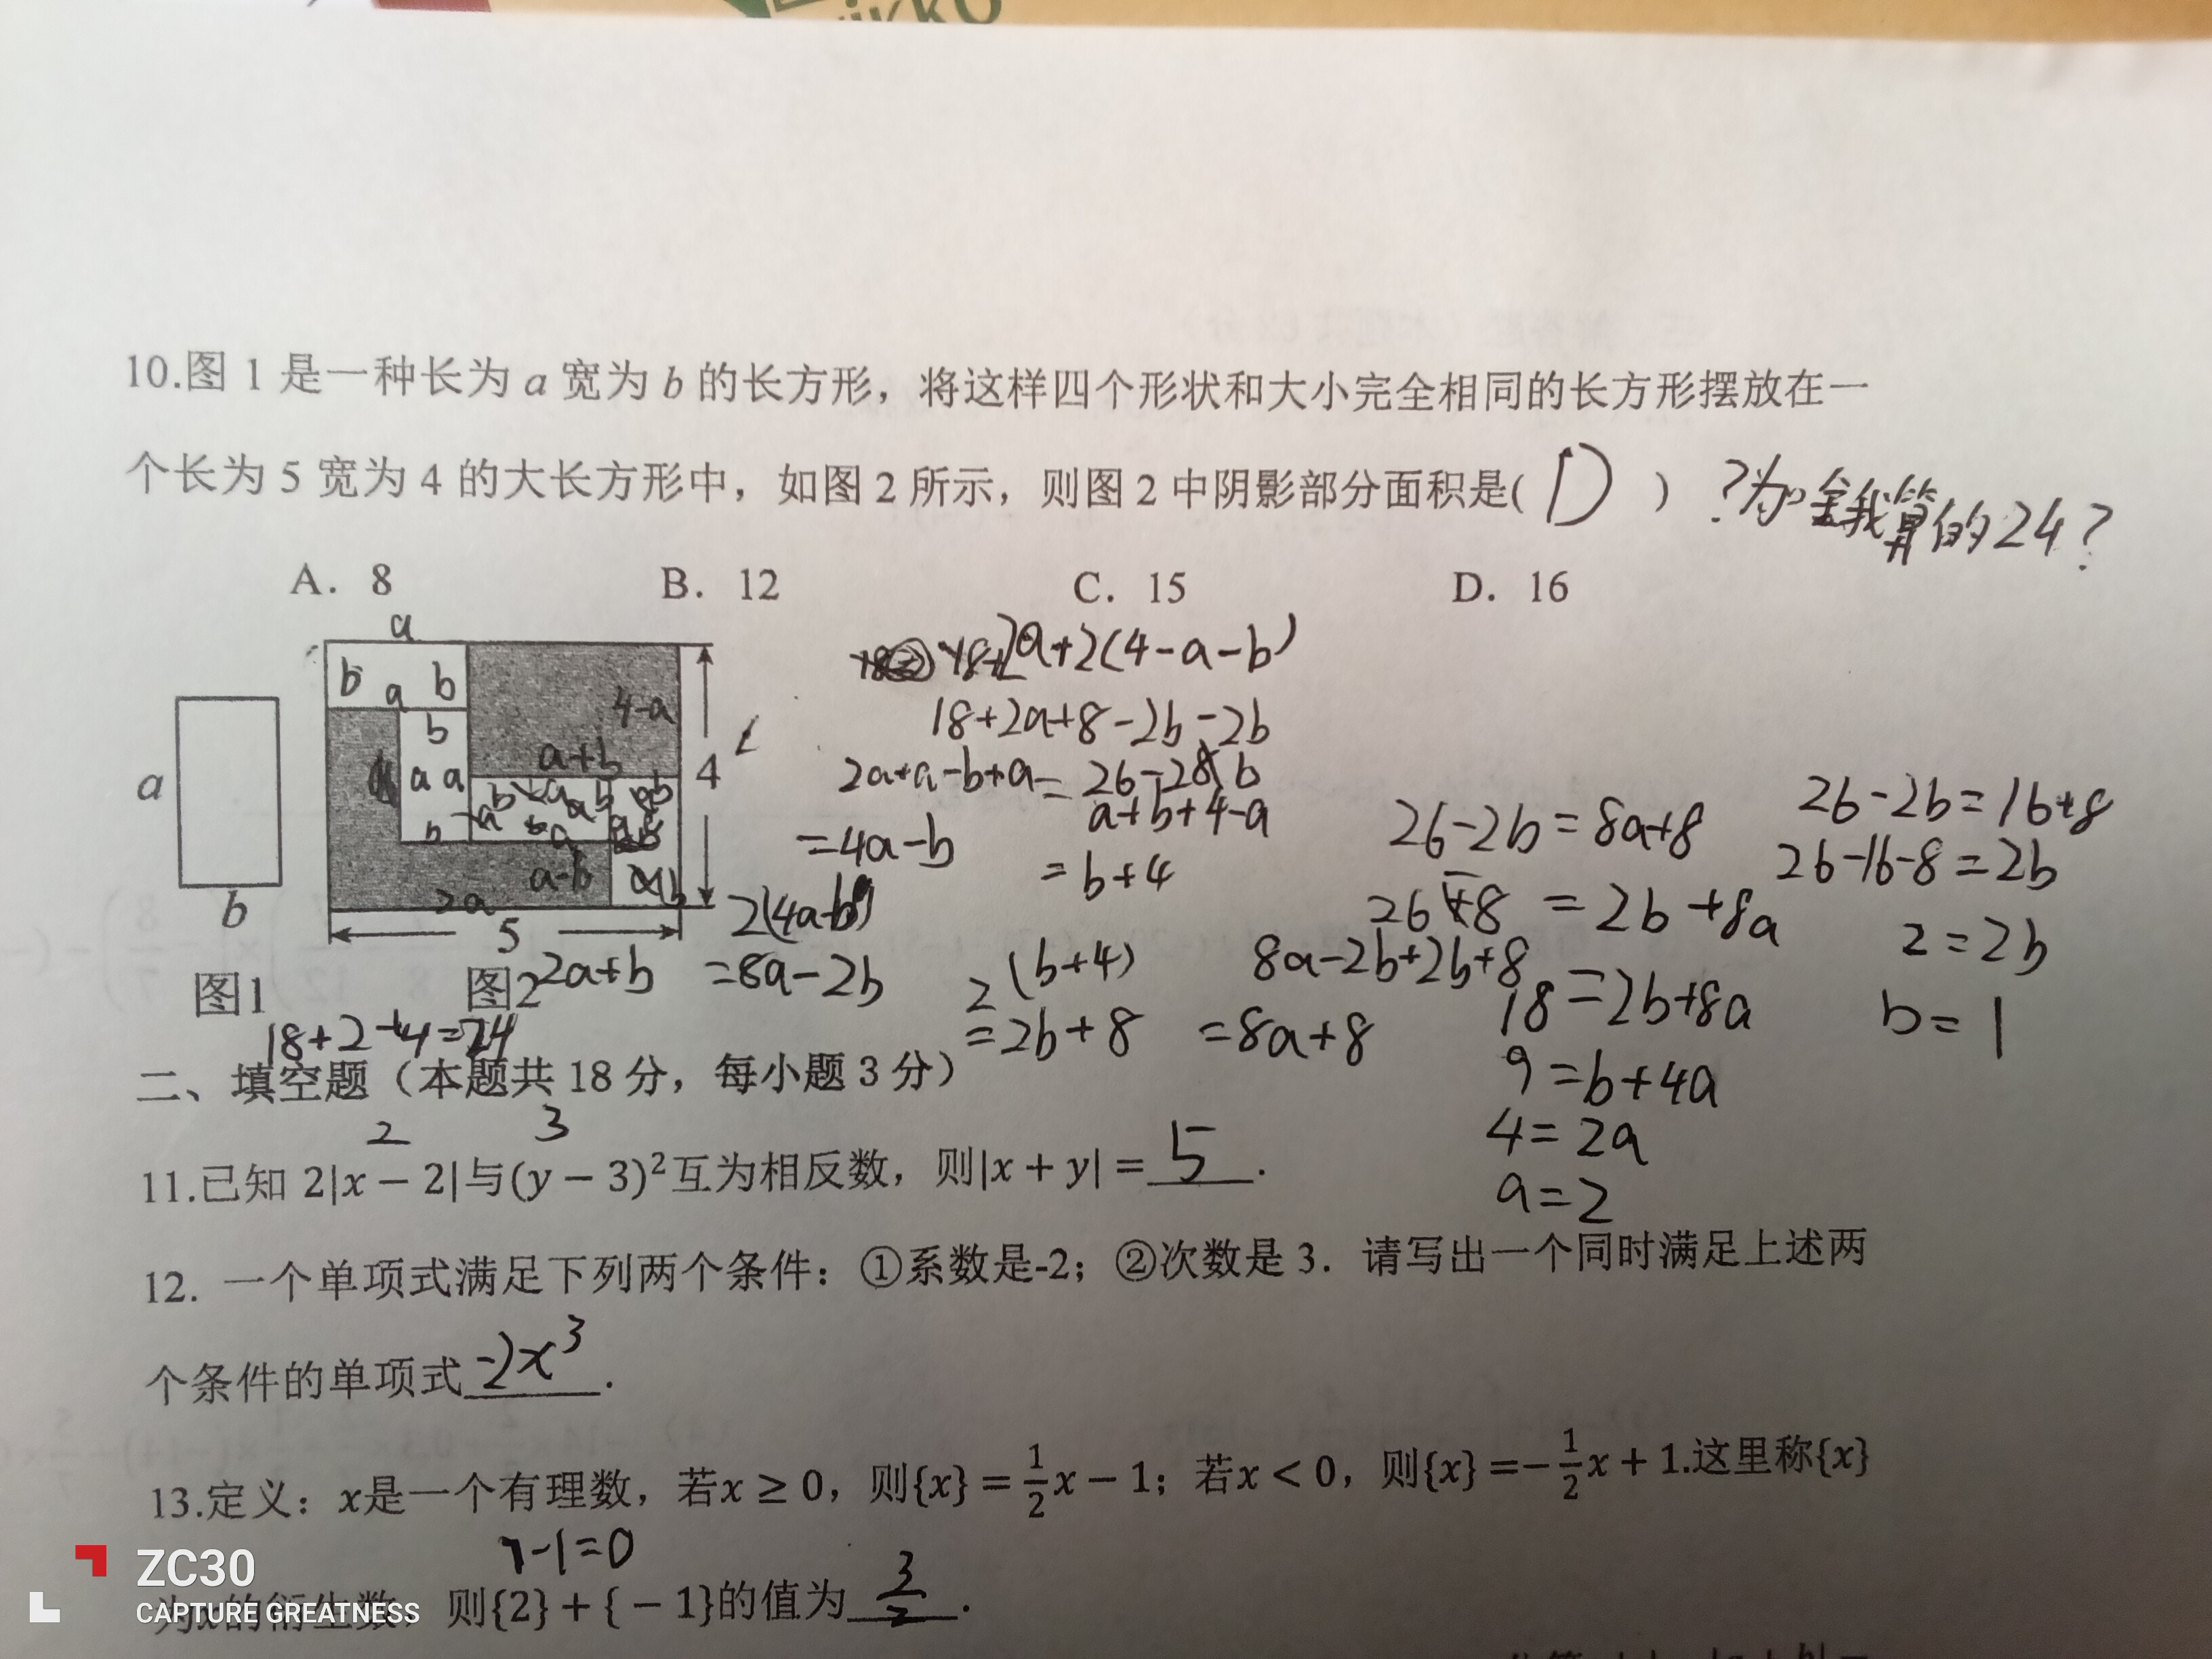 10.图 1 是一种长为 a 宽为 b 的长方形，将这样四个形状和大小完全相同的长方形摆放在一
个长为 5 宽为 4 的大长方形中，如图 2 所示，则图 2 中阴影部分面积是( D )
?为啥我算的24?
A. 8 B. 12 C. 15 D. 16
a
b a b
b
a a
b
4-a
a+b
a-b
2a
a
b
4
5
图1 图2
2a+b
18+2+4=24
18+2a+2(4-a-b)
18+2a+8-2b-2b
2a+a-b+a
=4a-b
2(4a-b)
=8a-2b
=26-28b
a+b+4-a
=b+4
2(b+4)
=2b+8
8a-2b+2b+8
=8a+8
26-2b=8a+8
26-8=2b+8a
18=2b+8a
9=b+4a
4=2a
a=2
26-2b=16+8
26-16-8=2b
2=2b
b=1
二、填空题（本题共 18 分，每小题 3 分）
2 3
11.已知 2|x − 2|与(y − 3)²互为相反数，则|x + y| = 5 .
12. 一个单项式满足下列两个条件：①系数是-2；②次数是 3．请写出一个同时满足上述两
个条件的单项式 -2x³ .
13.定义：x是一个有理数，若x ≥ 0，则{x} = 1/2x − 1；若x < 0，则{x} =− 1/2x + 1.这里称{x}
1-1=0
为x的衍生数. 则{2} + { − 1}的值为 3/2 .
ZC30
CAPTURE GREATNESS